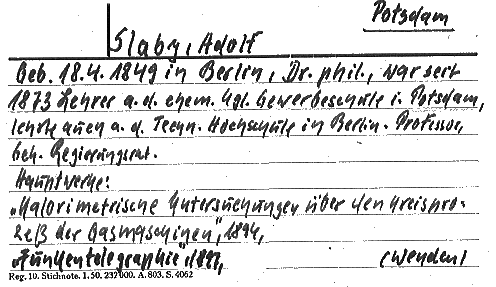 Potsdam
Slaby, Adolf
Geb. 18.4. 1849 in Berlin, Dr. phil., war seit
1873 Lehrer a. d. ehem. Kgl. Gewerbeschule i. Potsdam,
lehrte auch a. d. Techn. Hochschule in Berlin. Professor,
Geh. Regierungsrat.
Hauptwerke:
„Kalorimetrische Untersuchungen über den Kreispro-
zeß der Gasmaschinen", 1894,
„Funkentelegraphie", 1897,
(wenden)
Reg. 10. Stichnote. 1. 50. 237 000. A. 803. S. 4062